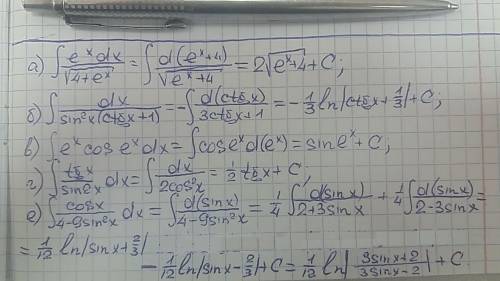 а) ∫ e^x dx / √(4+e^x) = ∫ d(e^x+4) / √(e^x+4) = 2√(e^x+4) + C;
б) ∫ dx / sin²x(ctg x+1) = -∫ d(ctg x) / 3ctg x+1 = -1/3 ln|ctg x + 1/3| + C;
в) ∫ e^x cos e^x dx = ∫ cos e^x d(e^x) = sin e^x + C;
г) ∫ tg x / sin2x dx = ∫ dx / 2cos²x = 1/2 tg x + C;
е) ∫ cosx / 4-9sin²x dx = ∫ d(sinx) / 4-9sin²x = 1/4 ∫ d(sinx) / 2+3sinx + 1/4 ∫ d(sinx) / 2-3sinx =
= 1/12 ln|sinx + 2/3|
- 1/12 ln|sinx - 2/3| + C = 1/12 ln| 3sinx+2 / 3sinx-2 | + C